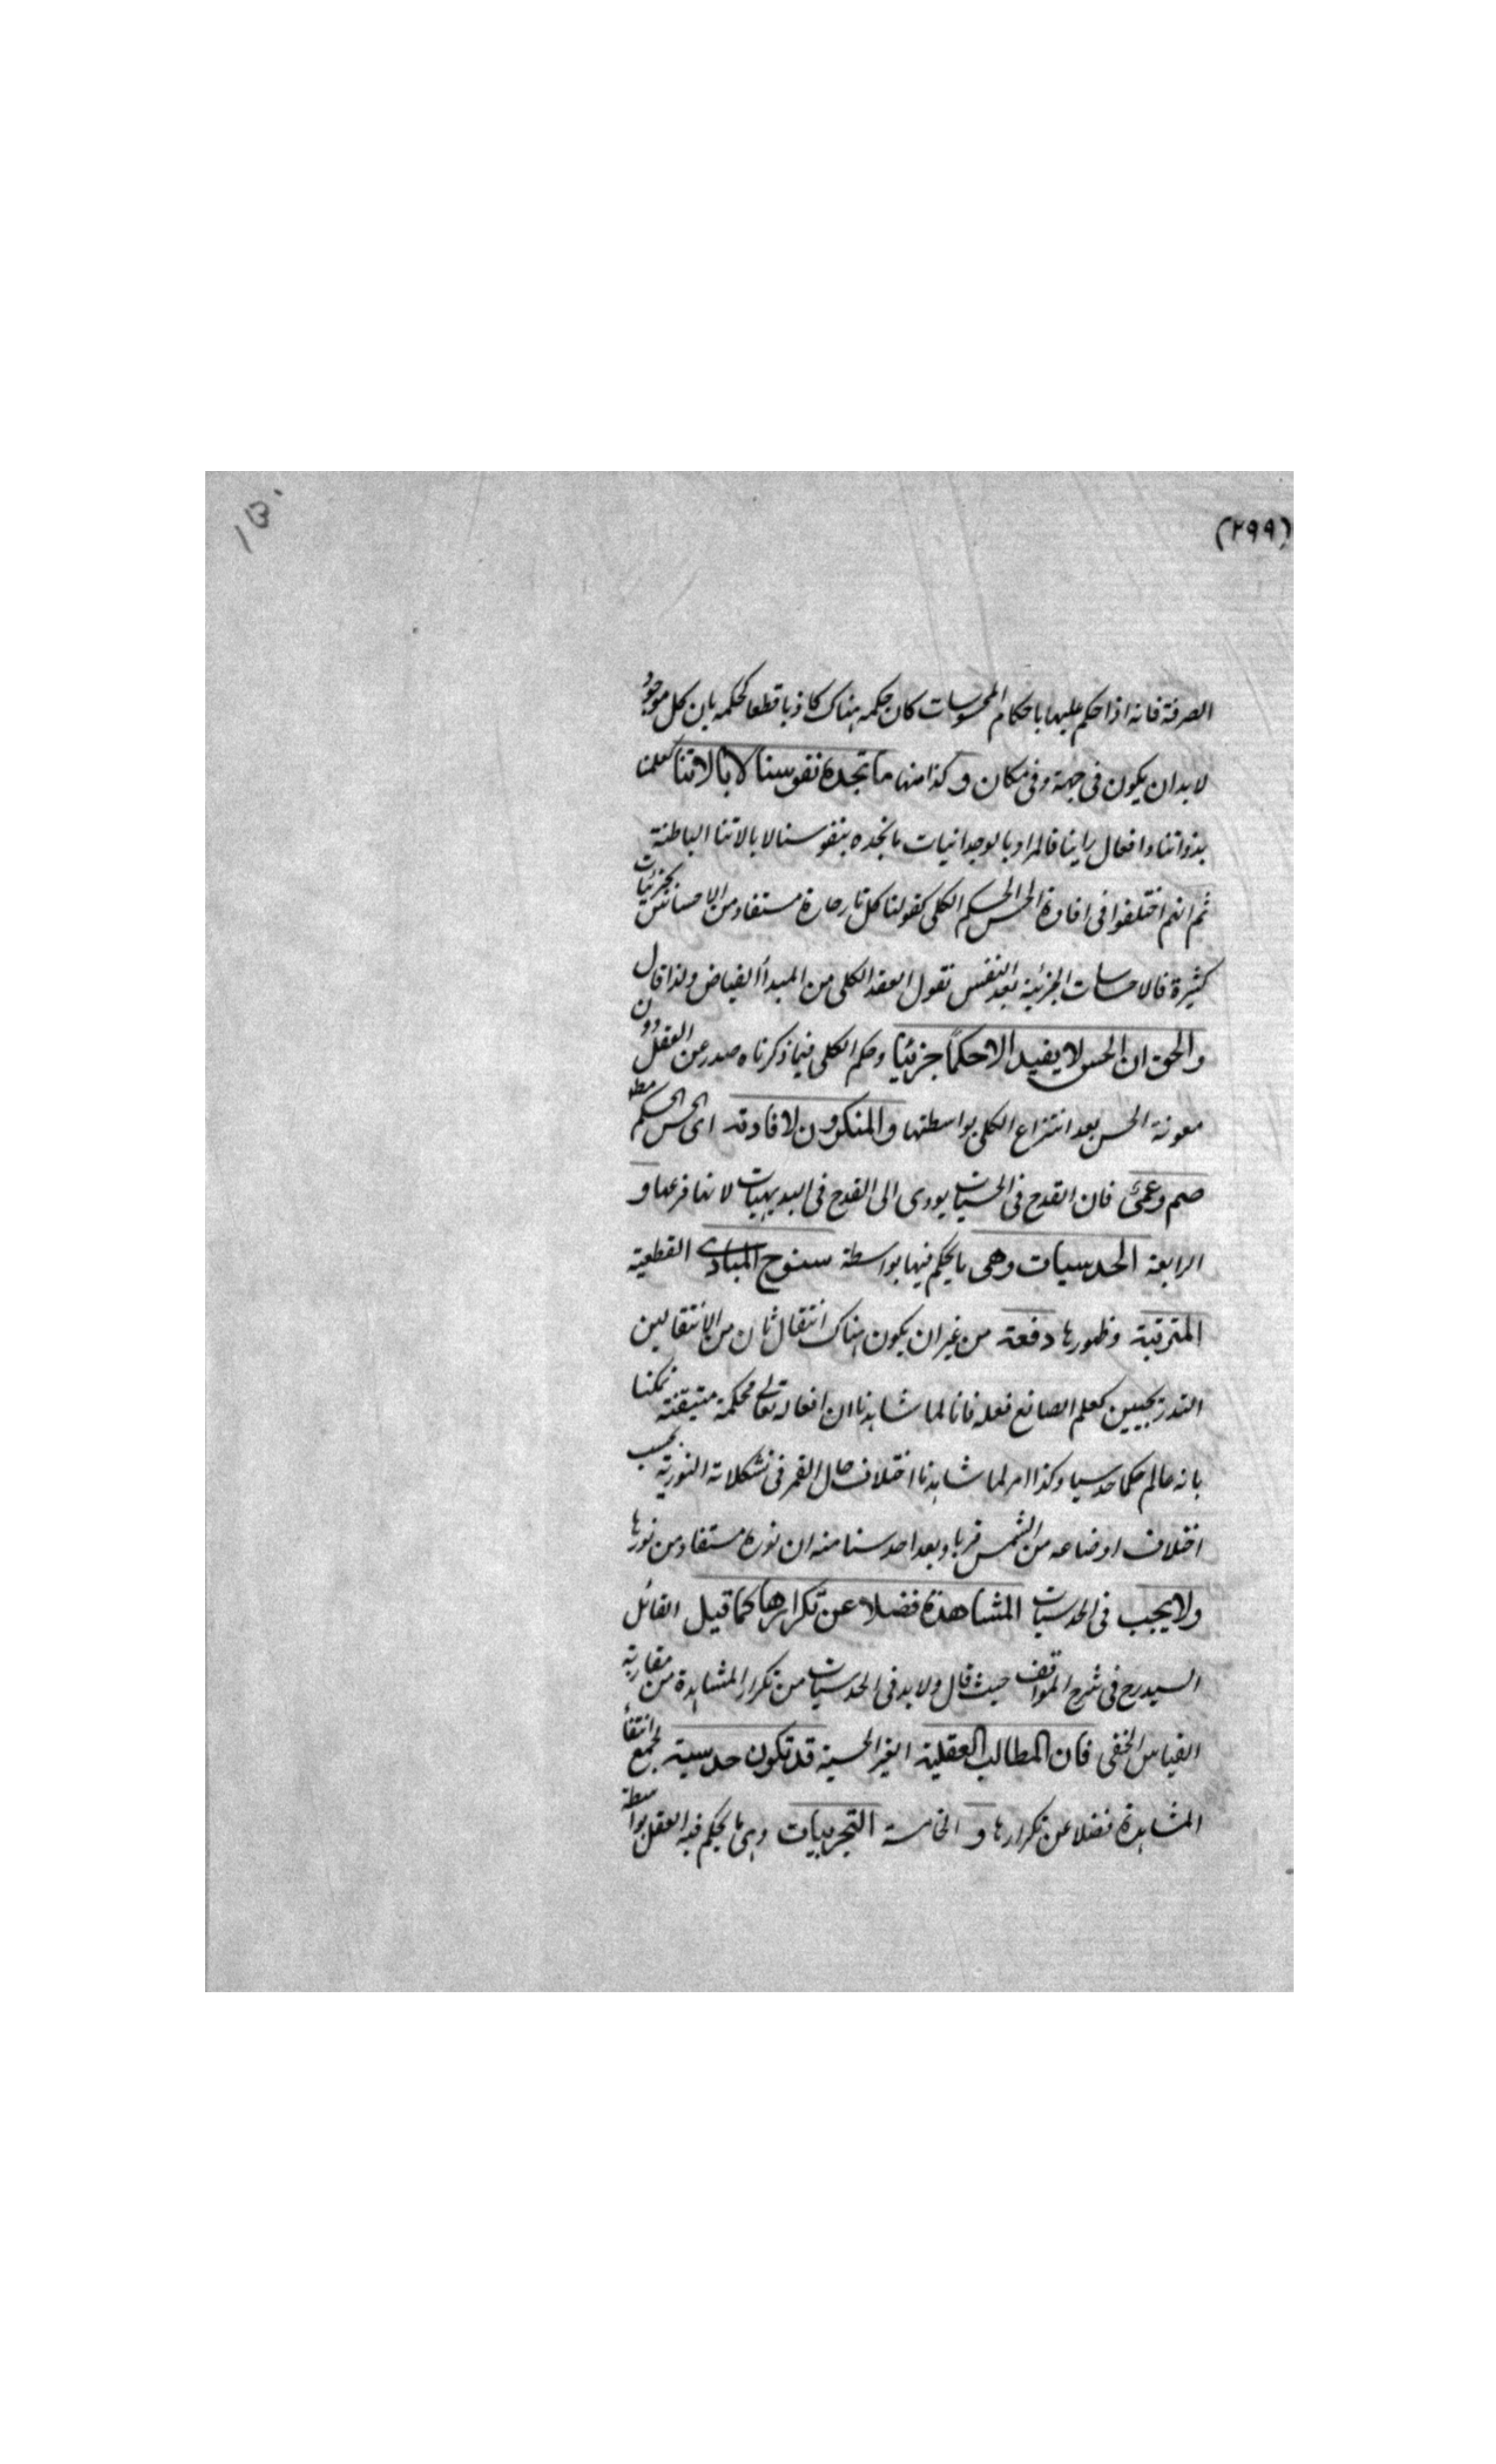 (٢٩٩)
١٥٠
الصرفة فانه اذا حكم عليها باحكام المحسوسات كان حكمه هناك كاذبا قطعا كحكمه بان كل موجود
لا بد ان يكون فى جهة وفى مكان وكذا منها ما تجده نفوسنا لا بالاتنا كعلمنا
بذواتنا وافعال راينا فالمراد بالوجدانيات ما نجده بنفوسنا لا بالاتنا الباطنة
ثم انهم اختلفوا فى افادة الحس الحكم الكلى كقولنا كل نار حارة مستفاد من الاحساس بجزئيات
كثيرة فالاحساسات الجزئية بعد النفس تقول العقد الكلى من المبدأ الفياض ولذا قال
والحق ان الحس لا يفيد الا حكمًا جزئيًا وحكم الكلى فيما ذكرناه صدر عن العقل دون
معونة الحس بعد انتزاع الكلى بواسطتها والمنكرون لافادته اى الحس الحكم مطلقا
صم وعمى فان القدح فى الحسيات يودى الى القدح فى البديهيات لانها فرعها و
الرابعة الحدسيات وهى ما يحكم فيها بواسطة سنوح المبادى القطعية
المترتبة وظهورها دفعة من غير ان يكون هناك انتقال ثان من الانتقالين
التدريجيين كعلم الصانع فعله فانا لما شاهدنا ان افعاله تعالى محكمة متيقنة حكمنا
بانه عالم حكما حدسيا وكذا امر لما شاهدنا اختلاف حال القمر فى تشكلاته النورية بحسب
اختلاف اوضاعه من الشمس قربا وبعدا حدسنا منه ان نوره مستفاد من نورها
ولا يجب فى الحدسيات المشاهدة فضلا عن تكرارها كما قيل القائل
السيد رح فى شرح المواقف حيث قال ولا بد فى الحدسيات من تكرار المشاهدة من مقارنة
القياس الخفى فان المطالب العقلية الغير الحسية قد تكون حدسية لجمع انتفأ
المشاهدة فضلا عن تكرارها و الخامسة التجربيات وهى ما يحكم فيه العقل بواسطة